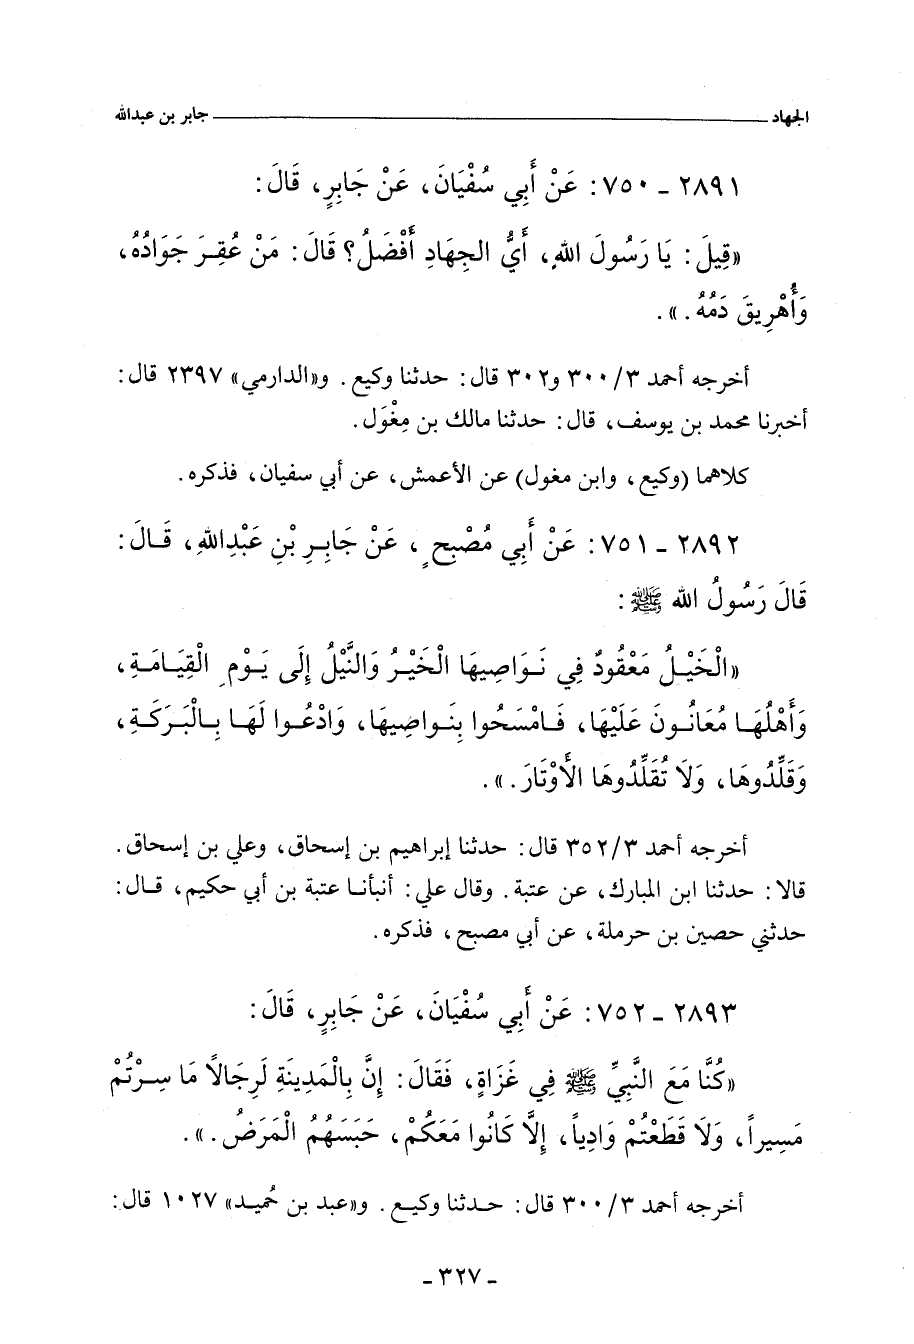 الجهاد ــــــ جابر بن عبدالله
٢٨٩١ ـ ٧٥٠: عَنْ أَبِي سُفْيَانَ، عَنْ جَابِرٍ، قَالَ:
«قِيلَ: يَا رَسُولَ اللهِ، أَيُّ الجِهَادِ أَفْضَلُ؟ قَالَ: مَنْ عُقِرَ جَوَادُهُ،
وَأُهْرِيقَ دَمُهُ.».
أخرجه أحمد ٣٠٠/٣ و٣٠٢ قال: حدثنا وكيع. و«الدارمي» ٢٣٩٧ قال:
أخبرنا محمد بن يوسف، قال: حدثنا مالك بن مِغْوَل.
كلاهما (وكيع، وابن مغول) عن الأعمش، عن أبي سفيان، فذكره.
٢٨٩٢ ـ ٧٥١: عَنْ أَبِي مُصْبِحٍ، عَنْ جَابِرِ بْنِ عَبْدِاللهِ، قَالَ:
قَالَ رَسُولُ الله ﷺ:
«الْخَيْلُ مَعْقُودٌ فِي نَوَاصِيهَا الْخَيْرُ وَالنَّيْلُ إِلَى يَوْمِ الْقِيَامَةِ،
وَأَهْلُهَا مُعَانُونَ عَلَيْهَا، فَامْسَحُوا بِنَوَاصِيهَا، وَادْعُوا لَهَا بِالْبَرَكَةِ،
وَقَلِّدُوهَا، وَلَا تُقَلِّدُوهَا الأَوْتَارَ.».
أخرجه أحمد ٣٥٢/٣ قال: حدثنا إبراهيم بن إسحاق، وعلي بن إسحاق.
قالا: حدثنا ابن المبارك، عن عتبة. وقال علي: أنبأنا عتبة بن أبي حكيم، قال:
حدثني حصين بن حرملة، عن أبي مصبح، فذكره.
٢٨٩٣ ـ ٧٥٢: عَنْ أَبِي سُفْيَانَ، عَنْ جَابِرٍ، قَالَ:
«كُنَّا مَعَ النَّبِيِّ ﷺ فِي غَزَاةٍ، فَقَالَ: إِنَّ بِالْمَدِينَةِ لَرِجَالاً مَا سِرْتُمْ
مَسِيراً، وَلَا قَطَعْتُمْ وَادِياً، إِلَّا كَانُوا مَعَكُمْ، حَبَسَهُمُ الْمَرَضُ.».
أخرجه أحمد ٣٠٠/٣ قال: حدثنا وكيع. و«عبد بن حُميد» ١٠٢٧ قال:
ـ ٣٢٧ ـ